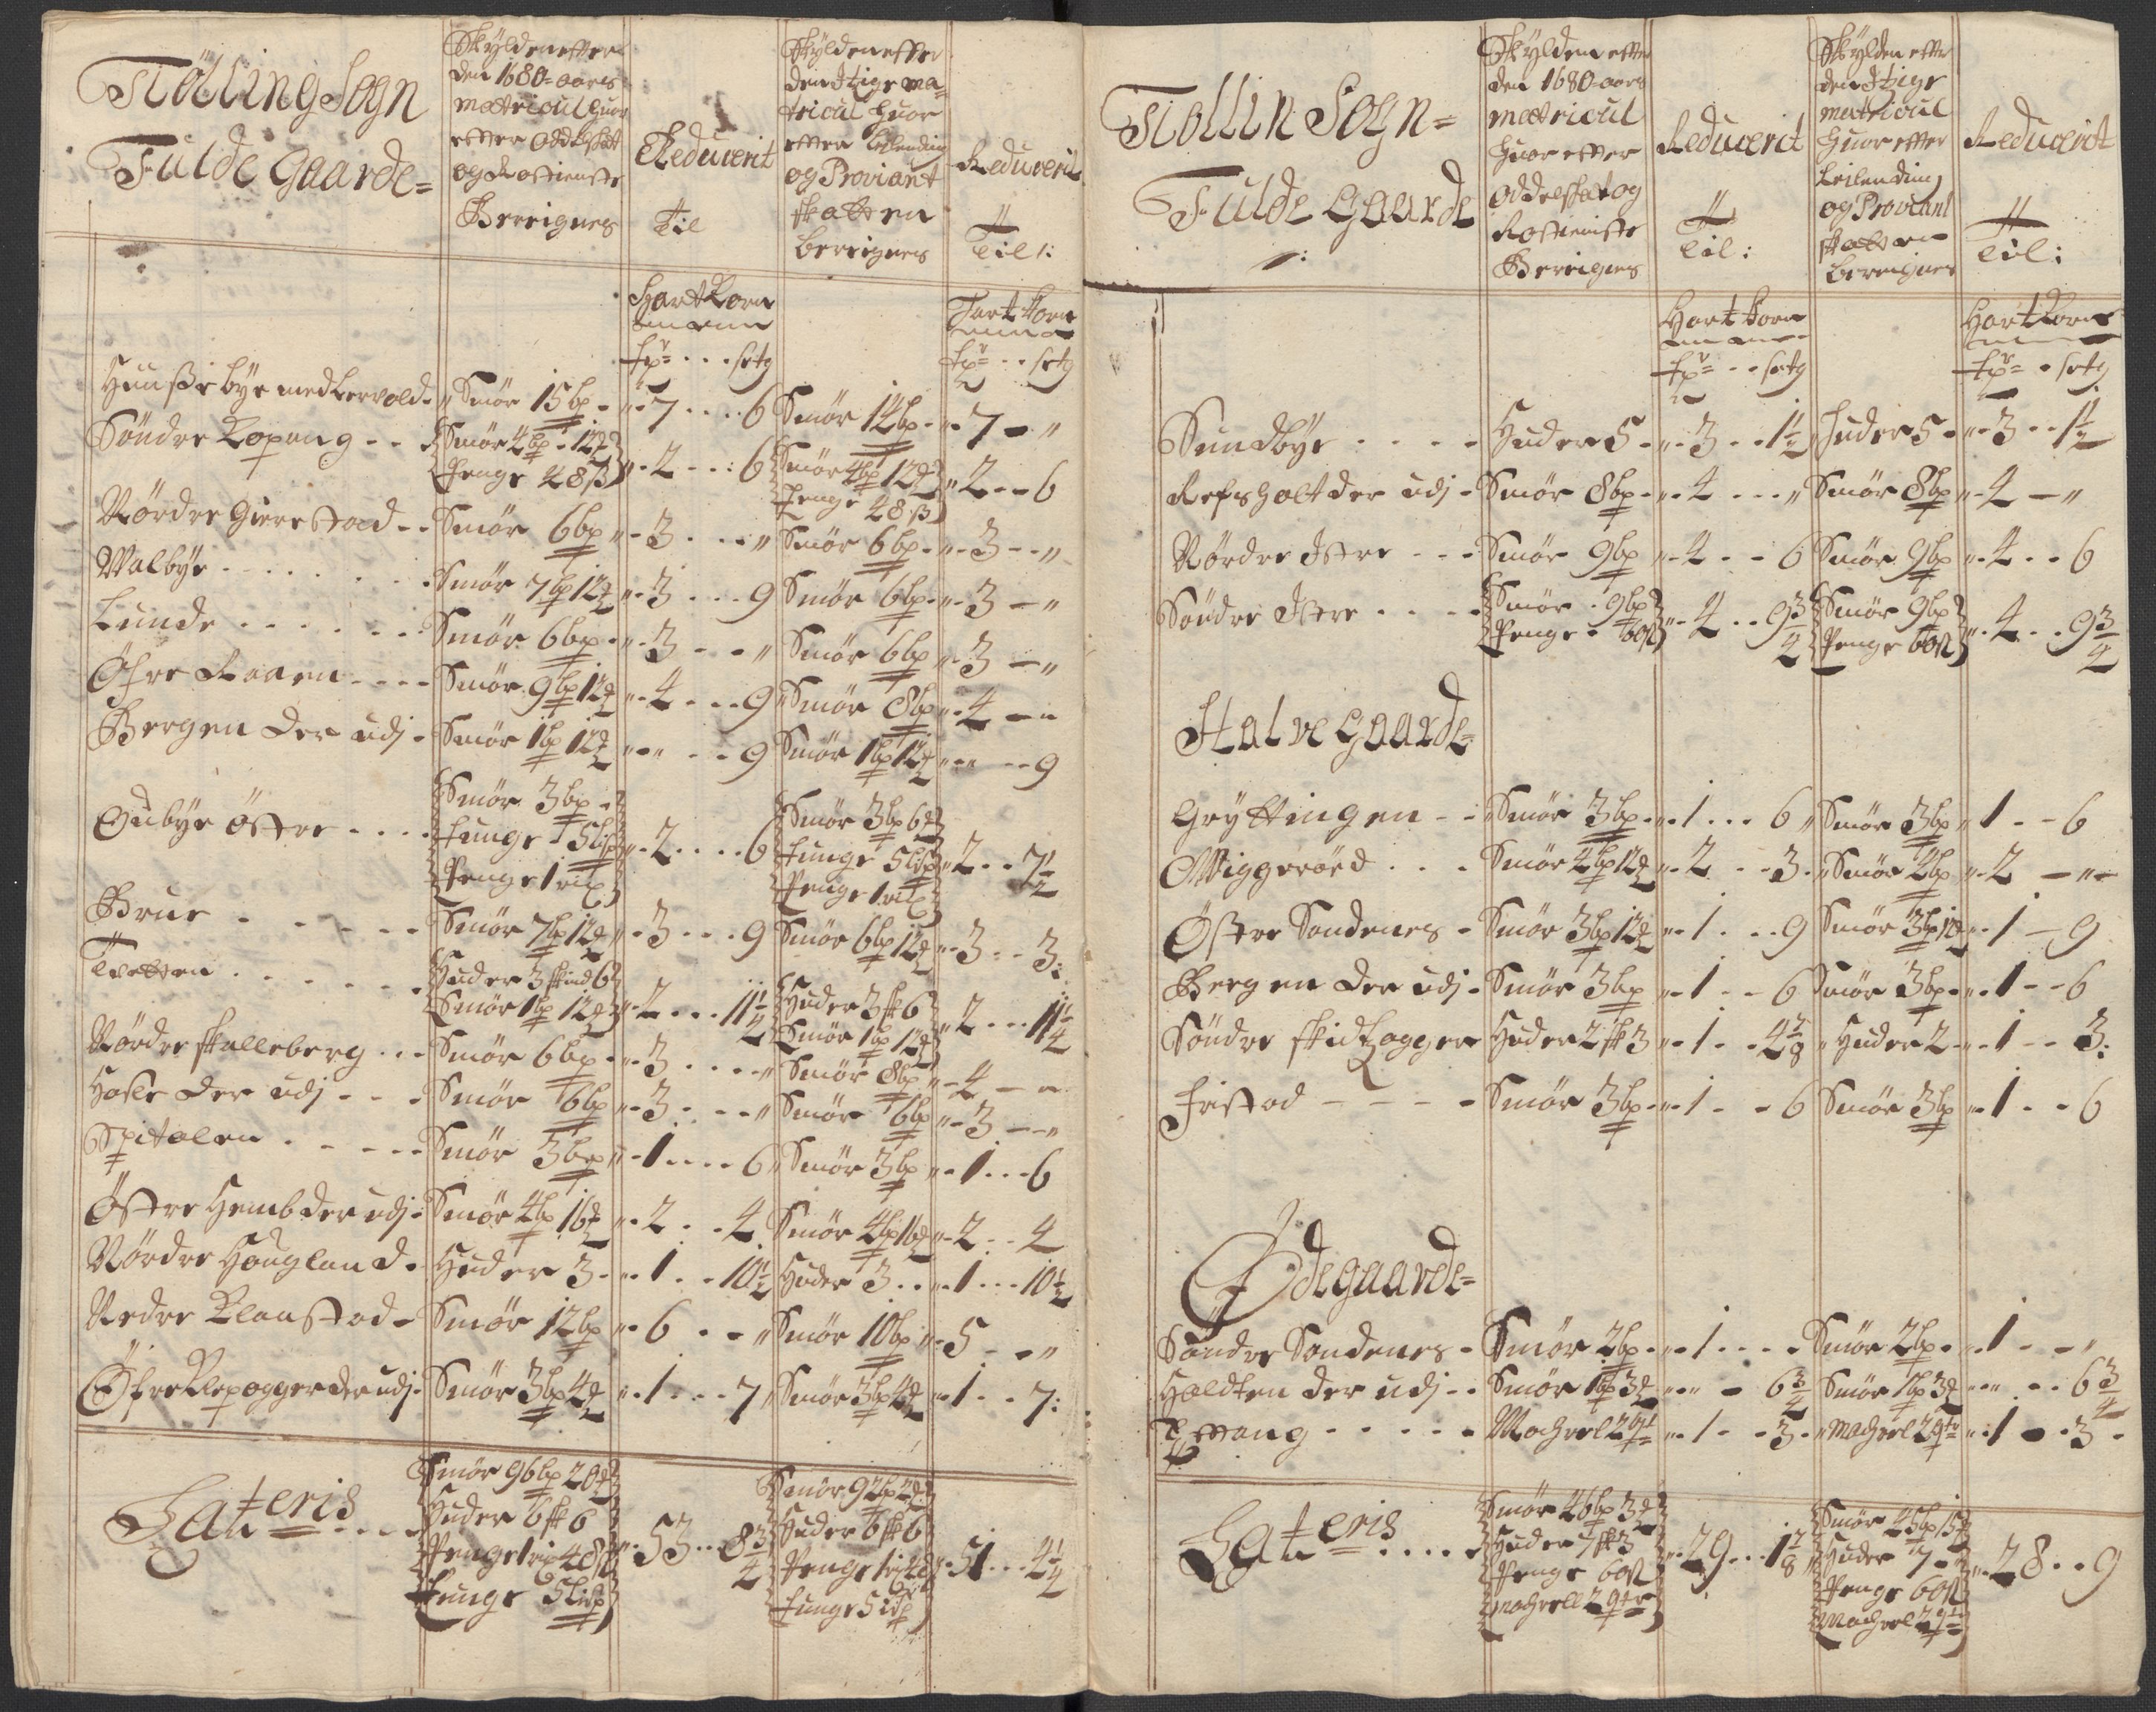 Tiölling Sogn
Fulde Gaarde=
Skÿlden efter den 1680= aars matricul huor efter Oddelskat og Rostieniste Bereignes
Reducerit Til
Skÿlden efter den itzige matricul huor efter Leilending og Proviant skatten bereignes
Reducerit Til:
Hart Korn Hart Korn
tr= . . setg tr= . . setg
Huusebÿe med Lervold - Smör 15 bp - 7 . . . 6 Smör 14 bp - 7 - "
Söndre Kopang - - Smör 4 bp - 12 Penge 48 ß - 2 - - : 6 Smör 4 bp 12 Penge 48 ß - 2 - - 6
Nördre Gierestad - - Smör 6 bp - 3 . . . " Smör 6 bp - 3 - - "
Walbÿe . . . . . Smör 7 bp 12 - 3 . . . 9 Smör 6 bp - 3 - "
Lunde . . . . . Smör 6 bp - 3 - - " Smör 6 bp - 3 - "
Öfre Raaen - - - - Smör 9 bp 12 - 4 - - . 9 Smör 8 bp - 4 - "
Bergen der udj - Smör 1 bp 12 - " . . 9 Smör 1 bp 12 - " - - 9
Gubÿe Östre . . . . Smör 3 bp - Tunge 5 lisp Penge 1 ort - 2 . . . . 6 Smör 3 bp 6 Tunge 5 lisp Penge 1 ort - 2 . . 7 1/2
Brue . . . . . Smör 7 bp 12 - 3 . . . 9 Smör 6 bp 12 - 3 . . 3:
Tvetten . . . . . Huder 3 skind 6 Smör 1 bp 12 - 2 . . . 11 1/4 Huder 3 sk 6 Smör 1 bp 12 - 2 . . . 11 1/4
Nördre skalleberg . . . Smör 6 bp - 3 . . . . " Smör 8 bp - 4 - "
Hasle der udj . . . Smör 6 bp - 3 . . . " Smör 6 bp - 3 - - "
Spitalen . . . . . Smör 3 bp - 1 . . . . 6 Smör 3 bp - 1 . . . 6
Östre Hemb der udj - Smör 4 bp 16 - 2 . . 4 Smör 4 bp 16 - 2 . . 4
Nördre Hougland - Huder 3 - - 1 . . 10 1/2 Huder 3 . . - 1 . . . 10 1/2
Nedre Klaastad - Smör 12 bp - 6 . . " Smör 10 bp - 5 - - "
Öfre Klepagger der udj - Smör 3 bp 4 - 1 . . . 7 Smör 3 bp 4 - 1 . . 7:
Lateris . . . . Smör 96 bp 20 Huder 6 sk 6 Penge 1 rix 48 ß Tunge 5 lisp - 53 . . 8 3/4 Smör 92 bp 2 Huder 6 sk 6 Penge 1 rix 48 Tunge 5 lisp - 51 . . . 4 1/4
Tiöllin Sogn=
Fulde Gaarde
Skÿlden efter den 1680 aars matricul huor efter Oddelskat og Rostieniste Bereignes
Reducerit Til:
Skÿlden efter den itzige matricul huor efter Leilending og Proviant skatten bereignes
Reducerit Til:
Hart Korn Hart Korn
tr= . . setg tr= . setg
Sundbÿe . . . . Huder 5 - - 3 . . 1 1/2 Huder 5 - - 3 . . 1 1/2
Refsholt der udj - Smör 8 bp - 4 . . . " Smör 8 bp - 4 - "
Nördre Istre - - - Smör 9 bp - 4 . . 6 Smör 9 bp - 4 . . 6
Söndre Istre . . . . Smör 9 bp Penge - 60 ß - 4 . . 9 3/4 Smör 9 bp Penge 60 ß - 4 . . 9 3/4
Halve Gaarde=
Grÿttingen - - Smör 3 bp - 1 . . . 6 Smör 3 bp 1 - - 6
Wiggerörd . . . Smör 4 bp 12 - 2 . . 3 - Smör 4 bp - 2 - "
Östre Sandenes - Smör 3 bp 12 - 1 . . . 9 Smör 3 bp 12 - 1 - 9
Bergen der udj - Smör 3 bp - 1 - - 6 Smör 3 bp - 1 - - 6
Söndre skidtzagger Huder 2 sk 3 - 1 . . 4 7/8 Huder 2 - - 1 - - 3:
Fristad - - - - Smör 3 bp - 1 - - 6 Smör 3 bp - 1 . . 6
Ødegaarde=
Söndre Sandenes - Smör 2 bp - 1 . . . - Smör 2 bp - 1 - - "
Haldten der udj - - Smör 1 bp 3 - " - 6 3/4 Smör 1 bp 3 - " . . 6 3/4
Machrel 2 qt - 1 - - 3 - Machrel 2 qtr - 1 - . 3 -
Lateris . . . . Smör 46 bp 3 Huder 7 sk 3 Penge 60 ß Machrell 2 qtr - 29 . . . 1 7/8 Smör 45 bp 15 Huder 7 - Penge 60 ß Machrel 2 qt - 28 . . 9